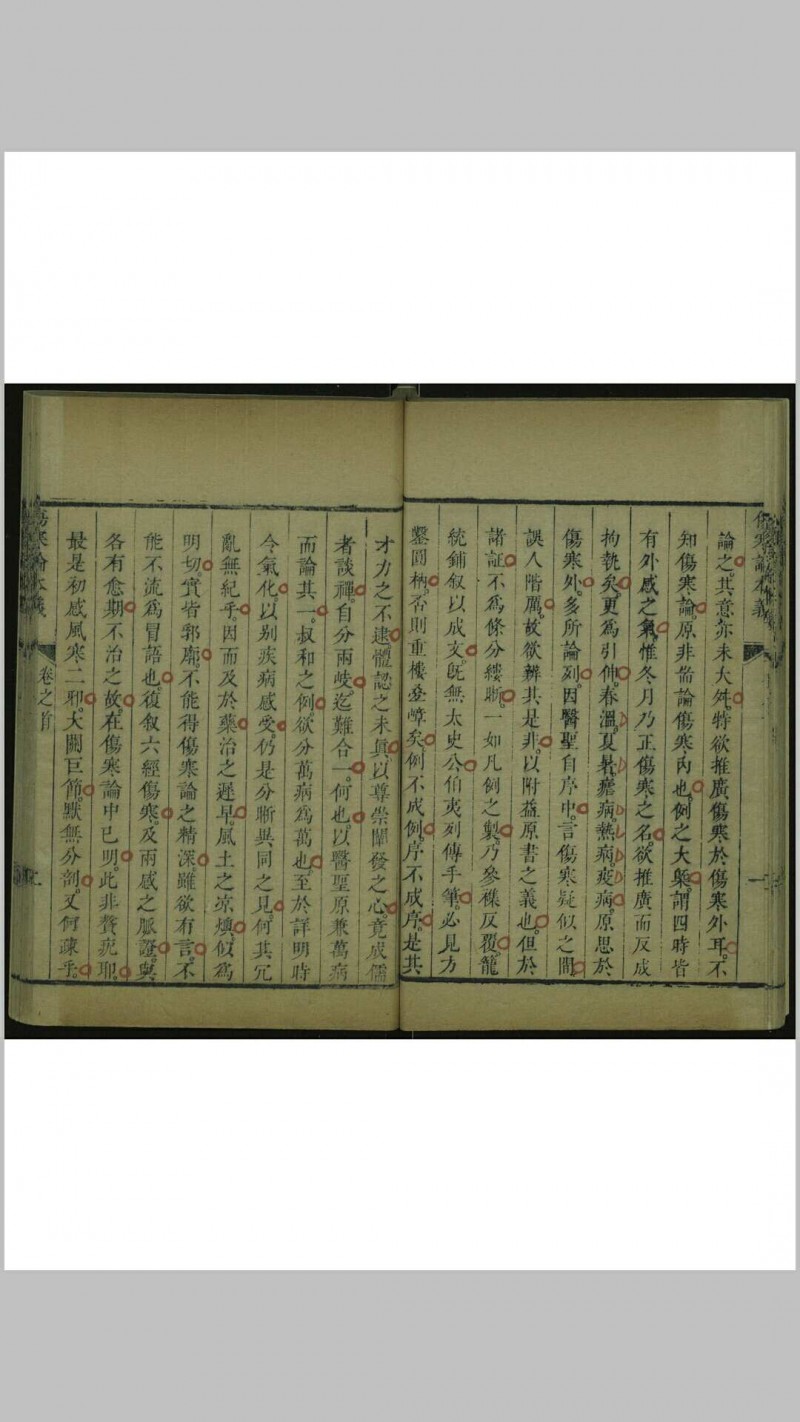 傷寒論本義
論之其意亦未大舛特欲推廣傷寒於傷寒外耳不
知傷寒論原非耑論傷寒內也例之大槩謂四時皆
有外感之氣惟冬月乃正傷寒之名欲推廣而反成
拘執矣更為引伸春溫夏暑瘧病熱病疫病原思於
傷寒外多所論列因醫聖自序中言傷寒疑似之間
誤人階厲故欲辨其是非以附益原書之義也但於
諸証不為條分縷晰一如凡例之製乃參襍反覆籠
統鋪叙以成文旣無太史公伯夷列傳手筆必見方
鑿圓枘否則重樓疊嶂矣例不成例序不成序是其
才力之不逮體認之未真以尊崇闡發之心竟成儒
者談禪自分兩岐迄難合一何也以醫聖原兼萬病
而論其一叔和之例欲分萬病為萬也至於詳明時
令氣化以别疾病感受仍是分晰異同之見何其冗
亂無紀乎因而及於藥治之遲早風土之凉燠似為
明切實皆郭廓不能得傷寒論之精深雖欲有言不
能不流為冒語也復叙六經傷寒及兩感之脈證與
各有愈期不治之故在傷寒論中已明此非贅疣耶
最是初感風寒二邪大關巨節默無分剖又何疎乎
傷寒論本義
卷之首